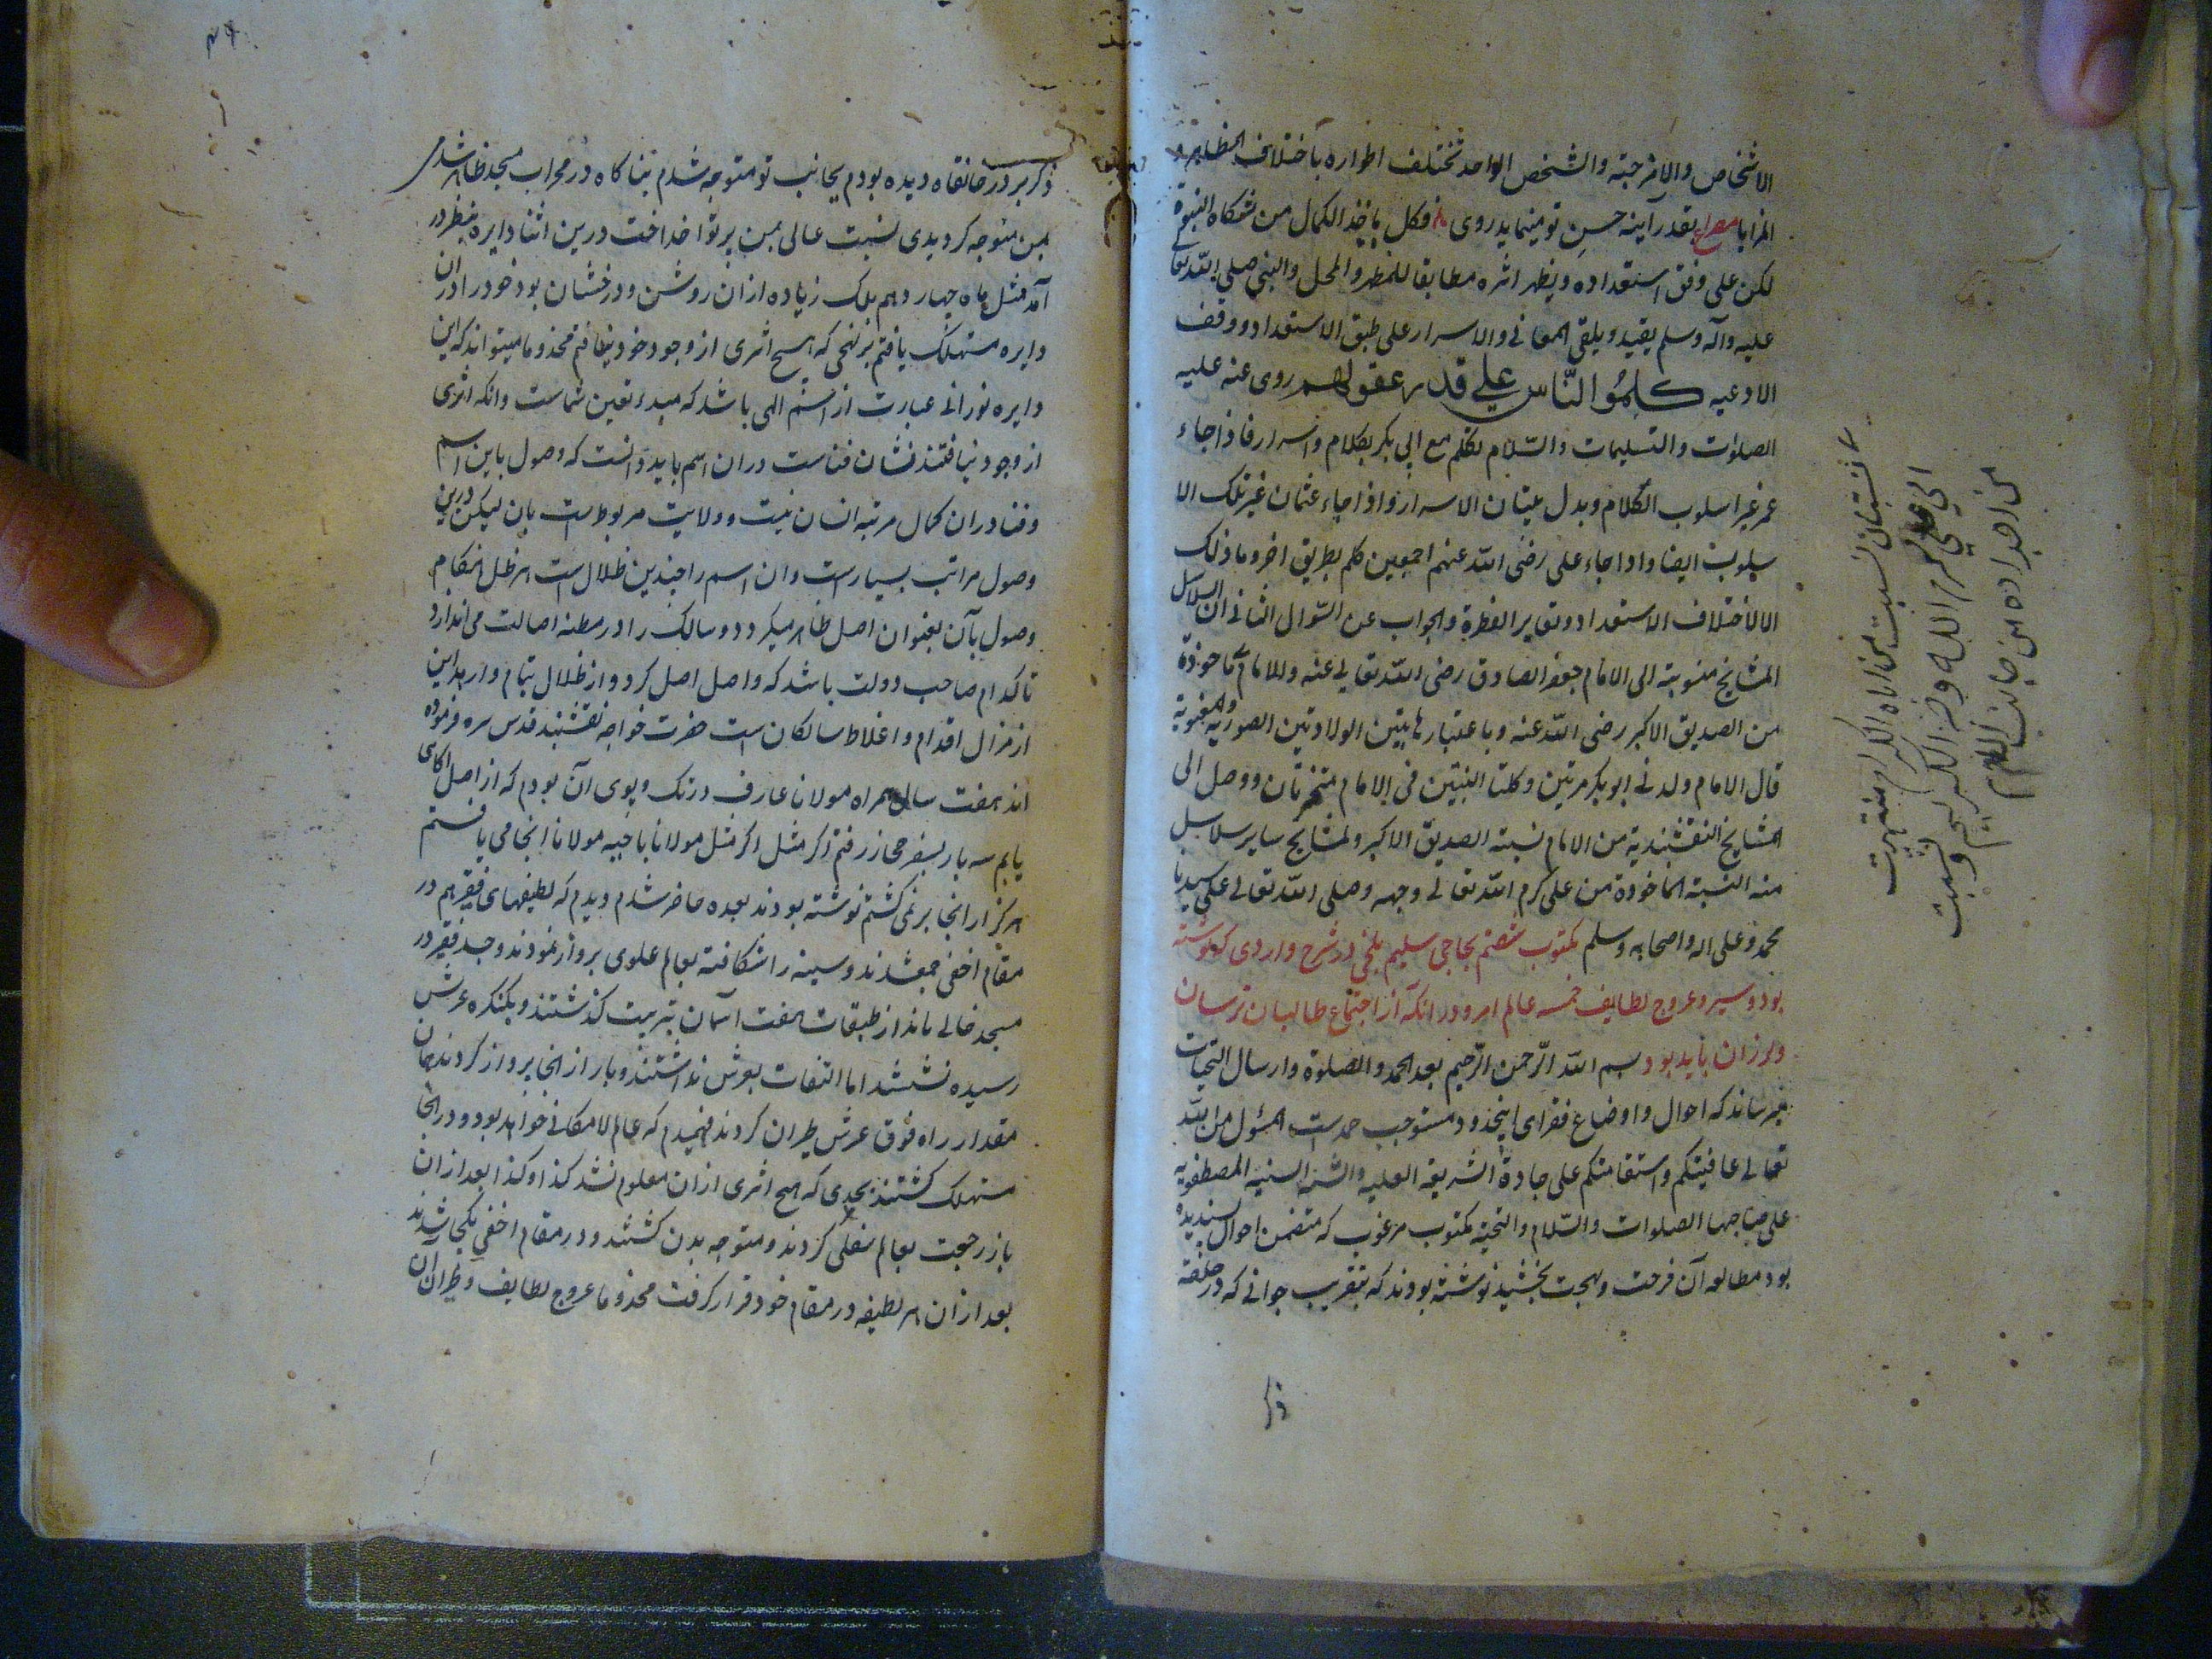 الاشخاص والامزجة والشخص الواحد تختلف اطواره باختلاف المظاهر و
المرایا مصراع بقدر آینه حسن تو مینماید روی فکل یاخذ الکمال من مشکاة النبوة
لکن علی وفق استعداده ویظهر اثره مطابقا للمظهر والمحل والنبی صلی الله تعالی
علیه وآله وسلم یفید ویلقی المعانی والاسرار علی طبق الاستعداد ووفق
الاوعیه کلموا الناس علی قدر عقولهم روی عنه علیه
الصلوات والتسلیمات والسلام تکلم مع ابی بکر بکلام واسرار فاذا جاء
عمر غیر اسلوب الکلام وبدل بیان الاسرار واذا جاء عثمان غیر تلک الا
سلوب ایضا واذا جاء علی رضی الله عنهم اجمعین کلم بطریق اخر وما ذلک
الا لاختلاف الاستعداد وتغایر الفطرة والجواب عن السؤال الثانی ان السلاسل
المشایخ منسوبة الی الامام جعفر الصادق رضی الله تعالی عنه وللامام ماخوذة
من الصدیق الاکبر رضی الله عنه وباعتبار هاتین الولادتین الصوریة والمعنویة
قال الامام ولدنی ابو بکر مرتین وکلتا النسبتین فی الامام متمیزتان ووصل الی
المشایخ النقشبندیة من الامام نسبة الصدیق الاکبر ولمشایخ سایر سلاسل
منه النسبة الماخوذة من علی کرم الله تعالی وجهه وصلی الله تعالی علی سیدنا
محمد وعلی اله واصحابه وسلم مکتوب شصتم بحاجی سلیم بلخی در شرح واردی که نوشته
بود وسیر وعروج لطایف خمسه عالم امر ودر انکه از اجتماع طالبان ترسان
ولرزان باید بود بسم الله الرحمن الرحیم بعد الحمد والصلوة وارسال التحیات
میرساند که احوال واوضاع فقرای اینحدود مستوجب حمد است المسؤل من الله
تعالی عافیتکم واستقامتکم علی جادة الشریعة العلیه والسنة السنیه المصطفویه
علی صاحبها الصلوات والسلام والتحیة مکتوب مرغوب که متضمن احوال پسندیده
بود مطالعه آن فرحت وبهجت بخشید نوشته بودند که بتقریب جوانی که در حلقه
ذکر
من اجداده من جانب الام
الی علی کرم الله وجهه الکریم ونسبت
نسبتان نسبت من اباه الکرام منتهیة
ذکر بر در خانقاه دیده بودم بجانب تو متوجه شدم بناگاه در محراب مسجد ظاهر شدی
بمن متوجه کردیدی نسبت عالی بمن پرتو انداخت درین اثنا دایره بنظر در
آمد مثل ماه چهاردهم بلک زیاده ازان روشن ودرخشان بود خود را دران
دایره مستهلک یافتم بر نهجی که هیچ اثری از وجود خود نیافتم مخدوما میتواند که این
دایره نورانی عبارت از اسم الهی باشد که مبدء تعین شماست وانکه اثری
از وجود نیافتند نشان فناست دران اسم باید دانست که وصول باین اسم
وفنا دران کمال مرتبه انسان نیست وولایت مربوط است بان لیکن درین
وصول مراتب بسیار است وان اسم را چندین ظلال است هر ظل هنکام
وصول بآن بعنوان اصل ظاهر میکردد وسالک را در مظنه اصالت می اندازد
تا کدام صاحب دولت باشد که واصل اصل کردد واز ظلال بتمام وارهد این
از مزال اقدام واغلاط سالکان است حضرت خواجه نقشبند قدس سره فرموده
اند هفت سال همراه مولانا عارف در تک وپوی آن بودم که از اصل آکاهی
یابم سه بار بسفر حجاز رفتم اکر مثل اکر مثل مولانا یا حبیه مولانا انجا می یافتم
هرکز از انجا بر نمی کشتم نوشته بودند بعده حاضر شدم ودیدم که لطیفهای فقیر هم در
مقام اخفی جمع شدند وسینه را شکافته بعالم علوی پرواز نمودند وجسد فقیر در
مسجد خالی ماند از طبقات هفت آسمان بتربیت کذشتند وبکنکره عرش
رسیده نشستند اما التفات بعرش نداشتند وباز از انجا پرواز کردند همان
مقدار راه فوق عرش طیران کردند فهمیدم که عالم لامکانی خواهد بود ودر انجا
مستهلک کشتند بحدی که هیچ اثری ازان معلوم نشد کذا وکذا بعد ازان
باز رجعت بعالم سفلی کردند ومتوجه بدن کشتند ودر مقام اخفی یکجا شدند
بعد ازان هر لطیفه در مقام خود قرار کرفت مخدوما عروج لطایف وطیران آن